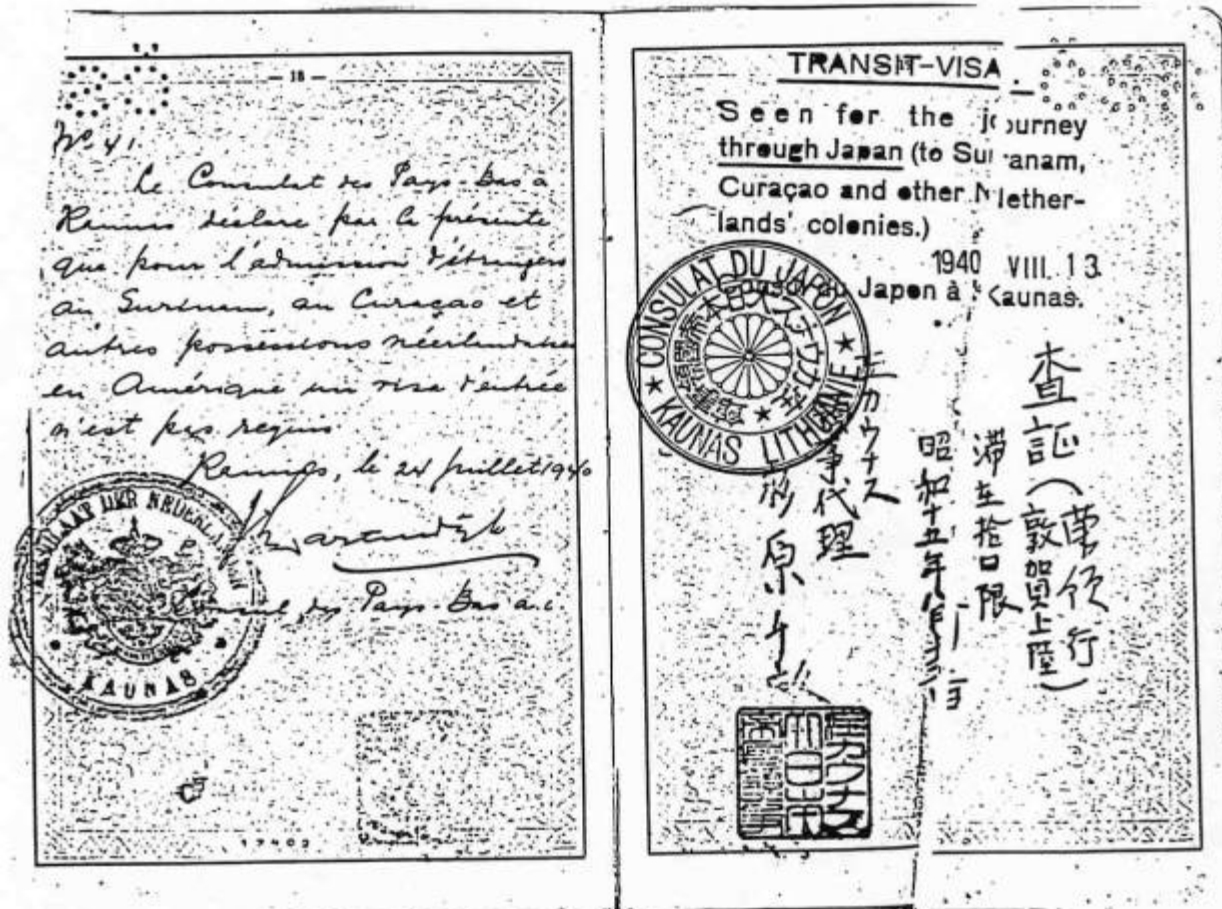 — 18 —
No 41
Le Consulat des Pays-Bas à
Kaunas déclare par la présente
que pour l'admission d'étrangers
au Surinam, au Curaçao et
autres possessions néerlandaises
en Amérique un visa d'entrée
n'est pas requis
Kaunas, le 24 juillet 1940
Consul des Pays-Bas a.i.
DER NEDERLANDEN
KAUNAS
TRANSIT-VISA.
Seen for the journey
through Japan (to Surinam,
Curaçao and other Nether-
lands' colonies.)
1940 VIII. 13.
Consul du Japon à Kaunas.
CONSULAT DU JAPON
KAUNAS LITHUANIE
査証(敦賀上陸)
蘭領行
滞在拾日限
昭和十五年八月
在カウナス
領事代理
杉原千畝